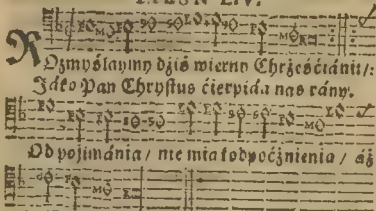 PIESN LIV.
ROzmyślaymy dźiś wierni Chrześćiánie/:
Jáko Pan Chrystus ćierpiał zá nas rány.
Od pojimánia / nie miał odpoćżnienia / áż